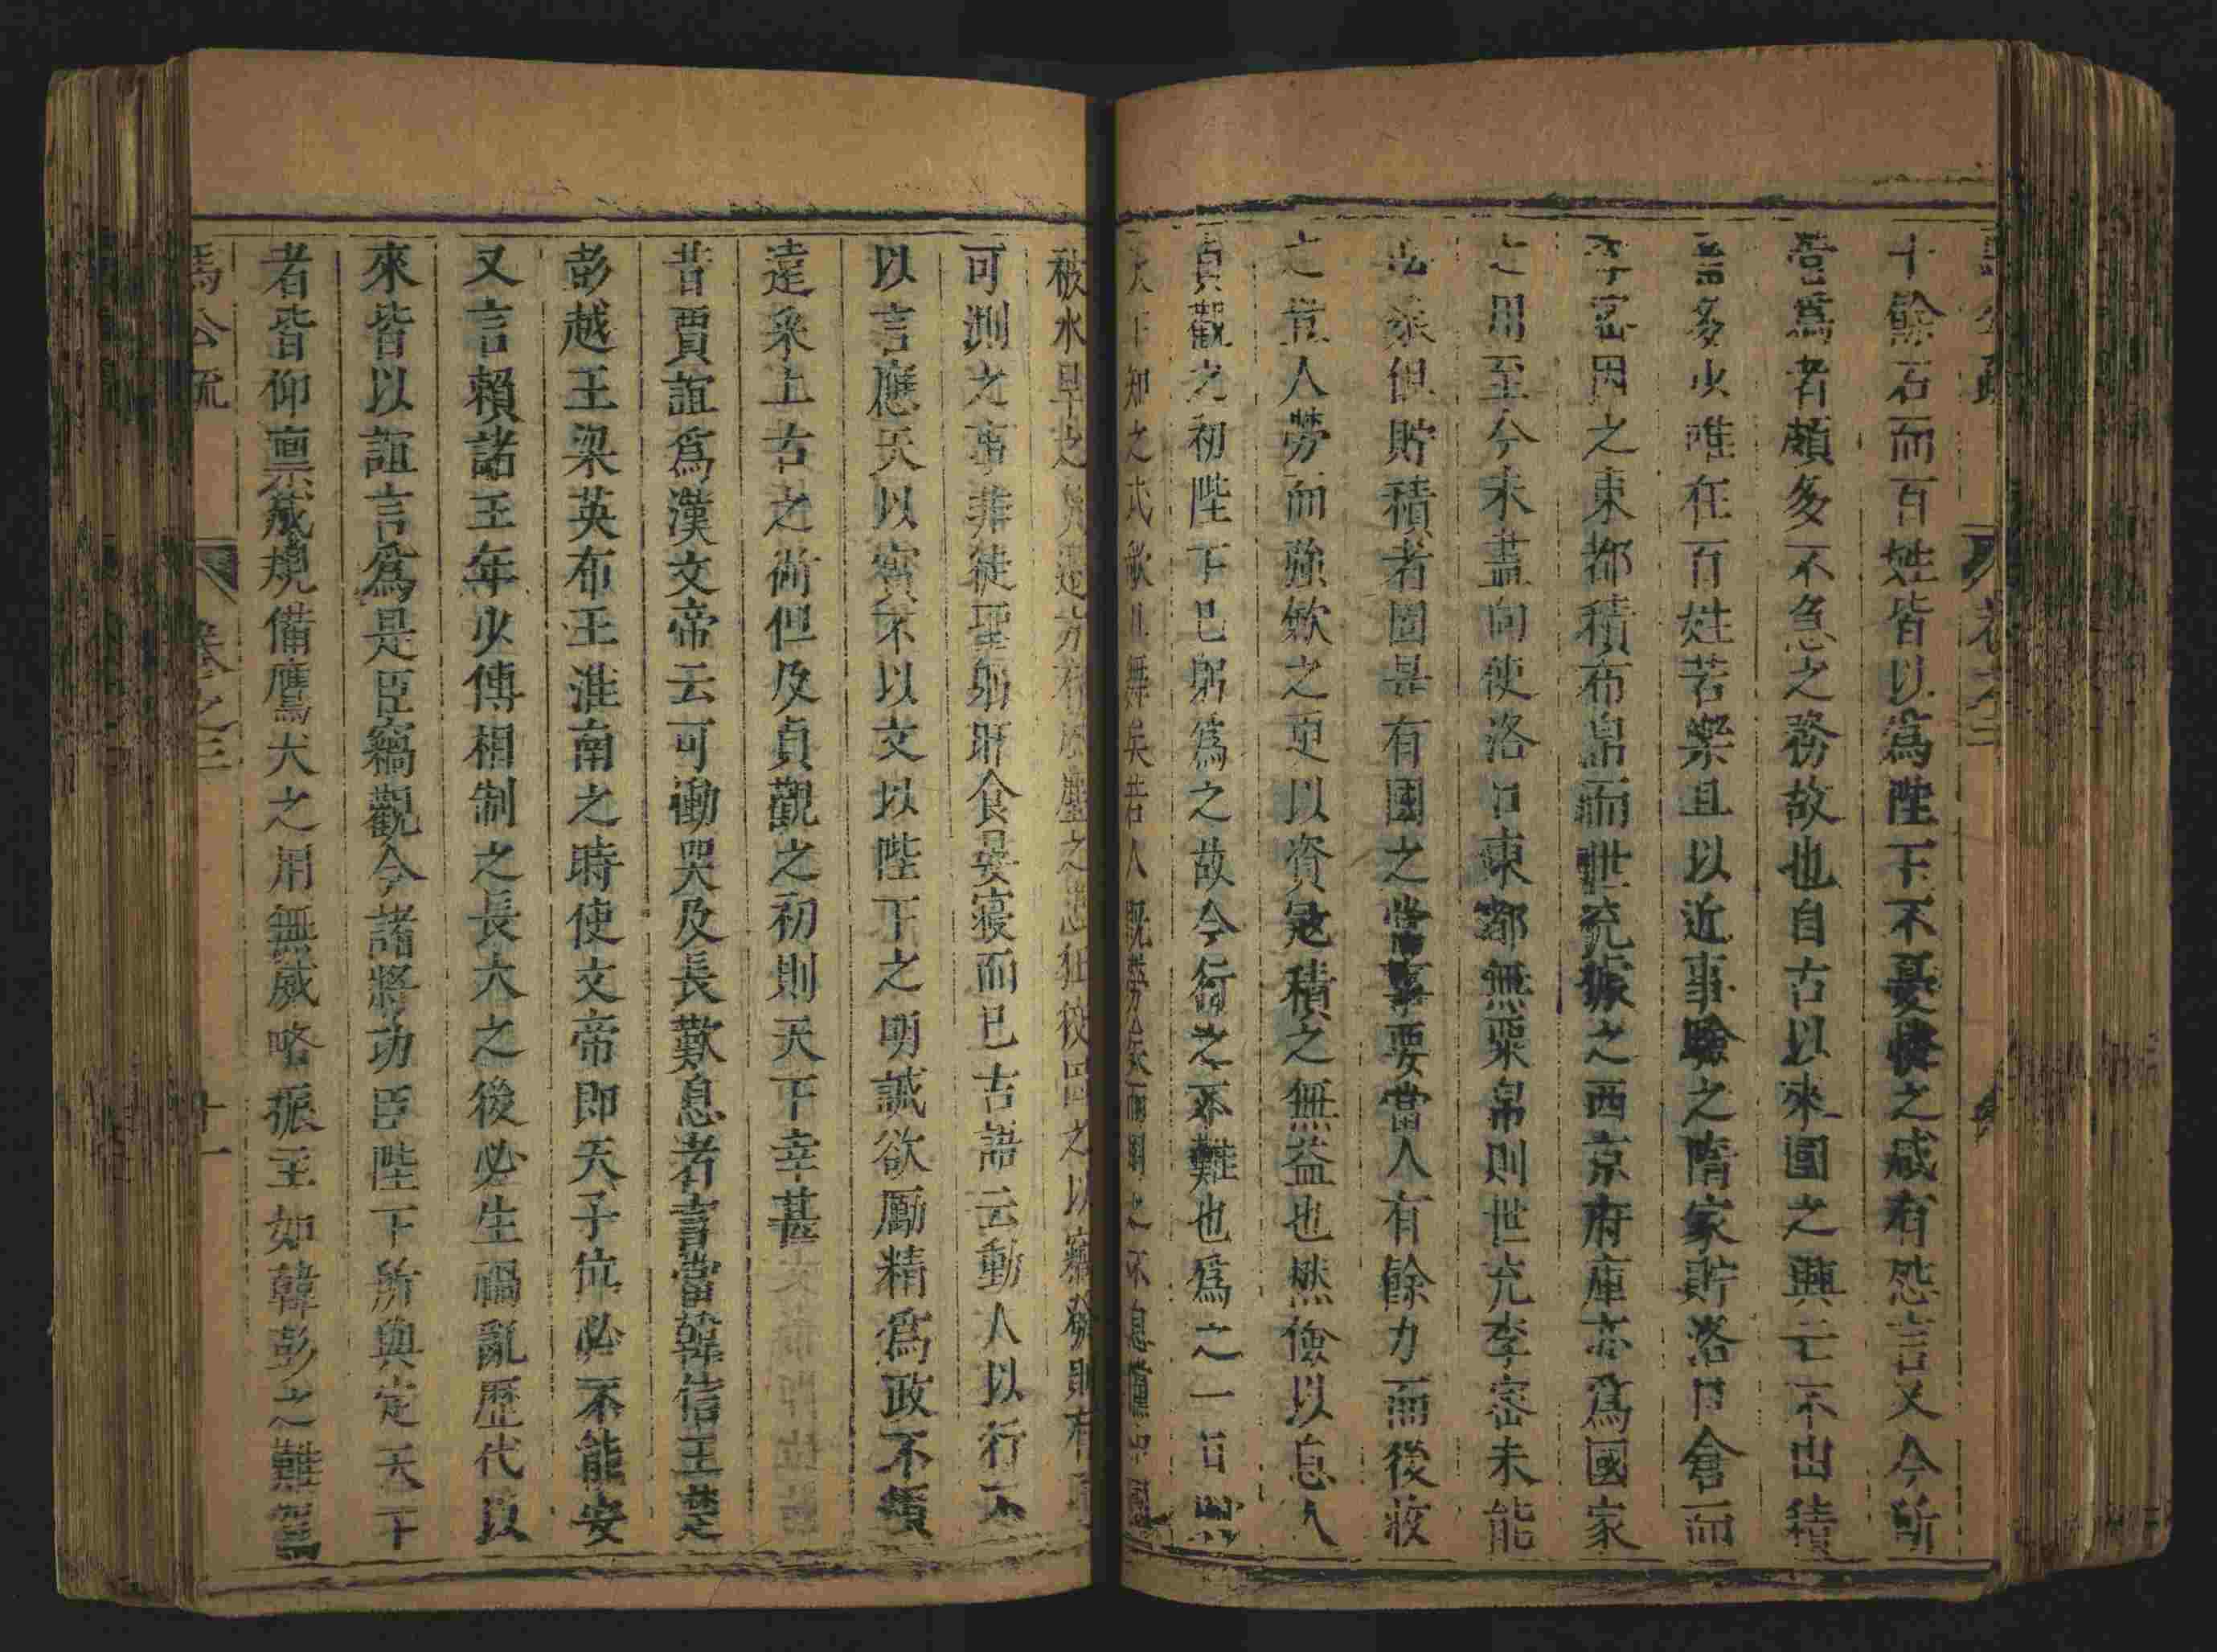 十餘石而百姓皆以爲陛下不憂憐之咸有怨言又今所
營爲者頗多不急之務故也自古以來國之興亡不出積
畜多少唯在百姓苦樂且以近事驗之隋家貯洛口倉而
李密因之東都積布帛而世充據之西京府庫亦爲國家
之用至今未盡向使洛口東都無粟帛則世充李密未能
必聚但貯積者固是有國之常事要當人有餘力而後收
之豈人勞而強歛之更以資寇積之無益也然儉以息人
貞觀之初陛下已躬爲之故今行之不難也爲之一日則
天下知之式歌且舞矣若人既勞矣而用之不息儻中國
被水旱之災邊方有風塵之急狂狡因之以竊發則有不
可測之事非徒聖躬旰食晏寢而已古語云動人以行不
以言應天以實不以文以陛下之明誠欲勵精爲政不煩
遠采上古之術但及貞觀之初則天下幸甚
昔賈誼爲漢文帝云可慟哭及長歎息者言當韓信王楚
彭越王梁英布王淮南之時使文帝即天子位必不能安
又言賴諸王年少傅相制之長大之後必生禍亂歷代以
來皆以誼言爲是臣竊觀今諸將功臣陛下所與定天下
者皆仰稟成規備鷹犬之用無威略振主如韓彭之難駕
馬公疏 卷之三 十一